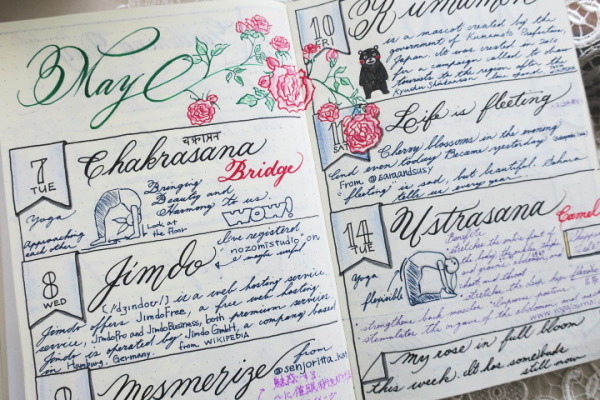 May
7
TUE
चक्रासन
Chakrasana
Bridge
Yoga
Approaching
each other
Bringing
Beauty and
Harmony to us.
Look at
the floor
WOW!
8
WED
Jimdo
I've registered
nozomistudio on
(/'dʒimdoʊ/) is a web hosting service.
Jimdo offers JimdoFree, a free web hosting
service, JimdoPro and JimdoBusiness, both premium service.
Jimdo is operated by Jimdo GmbH, a company based
in Hamburg, Germany. from WIKIPEDIA
9
Mesmerize
from
@senjoritta
魅惑する
10
FRI
Kumamon
is a mascot created by the
government of Kumamoto Prefecture,
Japan. It was created in
for a campaign called to draw
tourists to the region after the
Kyushu Shinkansen line opened
11
SAT
Life is fleeting
Cherry blossoms in the evening
And even today Became yesterday
From @samandsusy
"fleeting" is sad, but beautiful. Sakura
tells us every year
14
TUE
Ustrasana
Camel
Yoga
flexible
Benefits
Stretches the entire front of
the body,
and groins
chest and throat
Stretches the deep hip flexors
strengthens back muscles. Improves posture.
stimulates the organs of the abdomen and
My rose in full bloom
this week. It has somebuds
still now